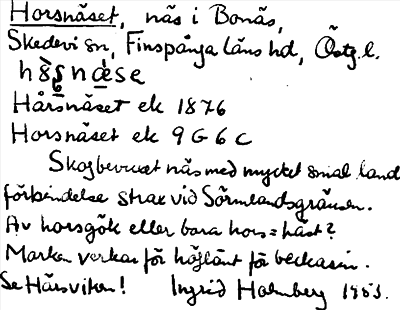 Horsnäset, näs i Bonäs,
Skedevi sn, Finspånga läns hd, Östg. l.
Hårsnäset ek 1876
Horsnäset ek 9 G 6 C
Skogbevuxet näs med mycket smal land
förbindelse strax vid Sörmlandsgränsen.
Av horsgök eller bara hors = häst?
Marken verkar för höglänt för beckasin.
Se Hårsviken! Ingrid Holmberg 1953.